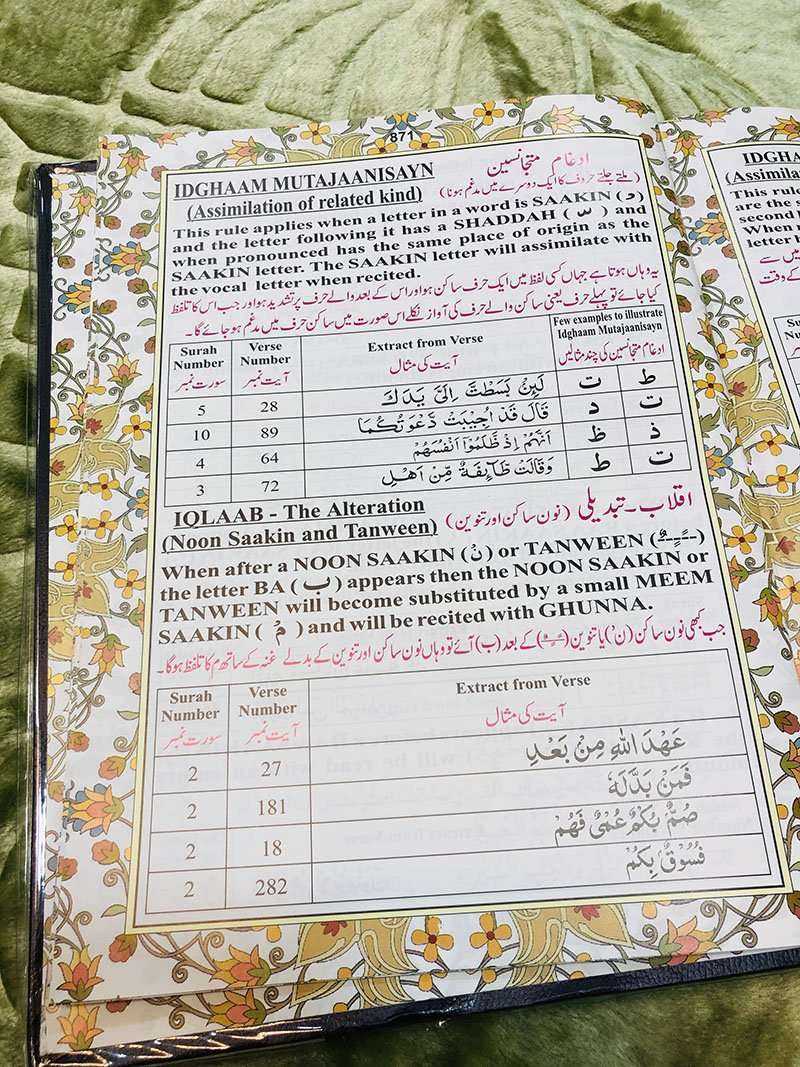 871
IDGHAAM MUTAJAANISAYN ادغام متجانسین
(Assimilation of related kind) (ملتے جلتے حروف کا ایک دوسرے میں مدغم ہونا)
This rule applies when a letter in a word is SAAKIN (د)
and the letter following it has a SHADDAH ( ّ ) and
when pronounced has the same place of origin as the
SAAKIN letter. The SAAKIN letter will assimilate with
the vocal letter when recited.
یہ وہاں ہوتا ہے جہاں کسی لفظ میں ایک حرف ساکن ہو اور اس کے بعد والے حرف پر تشدید ہو اور جب اس کا تلفظ
کیا جائے تو پہلے حرف یعنی ساکن والے حرف کی آواز نکلے اس صورت میں ساکن حرف میں مدغم ہو جائے گا۔
Surah Number سورت نمبر
Verse Number آیت نمبر
Extract from Verse آیت کی مثال
Few examples to illustrate Idghaam Mutajaanisayn
ادغام متجانسین کی چند مثالیں
5 28 لَئِنْۢ بَسَطْتَّ اِلَیَّ یَدَكَ ت ط
10 89 قَالَ قَدْ اُجِیْبَتْ دَّعْوَتُكُمَا د ت
4 64 اَنَّهُمْ اِذْ ظَّلَمُوْۤا اَنْفُسَهُمْ ظ ذ
3 72 وَقَالَتْ طَّآئِفَةٌ مِّنْ اَهْلِ ط ت
IQLAAB - The Alteration اقلاب۔ تبدیلی
(Noon Saakin and Tanween) (نون ساکن اور تنوین)
When after a NOON SAAKIN (نْ) or TANWEEN (ــًــٍــٌ)
the letter BA (ب) appears then the NOON SAAKIN or
TANWEEN will become substituted by a small MEEM
SAAKIN ( مْ ) and will be recited with GHUNNA.
جب کبھی نون ساکن (نْ) یا تنوین (ــًــٍــٌ) کے بعد (ب) آئے تو وہاں نون ساکن اور تنوین کے بدلے غنہ کے ساتھ م کا تلفظ ہوگا۔
Surah Number سورت نمبر
Verse Number آیت نمبر
Extract from Verse آیت کی مثال
2 27 عَهْدَ اللّٰهِ مِنْۢ بَعْدِ
2 181 فَمَنْۢ بَدَّلَهٗ
2 18 صُمٌّۢ بُكْمٌ عُمْیٌ فَهُمْ
2 282 فُسُوْقٌۢ بِكُمْ
IDGHA
(Assimila
This rul
are the s
second
When
letter b
میں سے
کے وقت
Su
Num